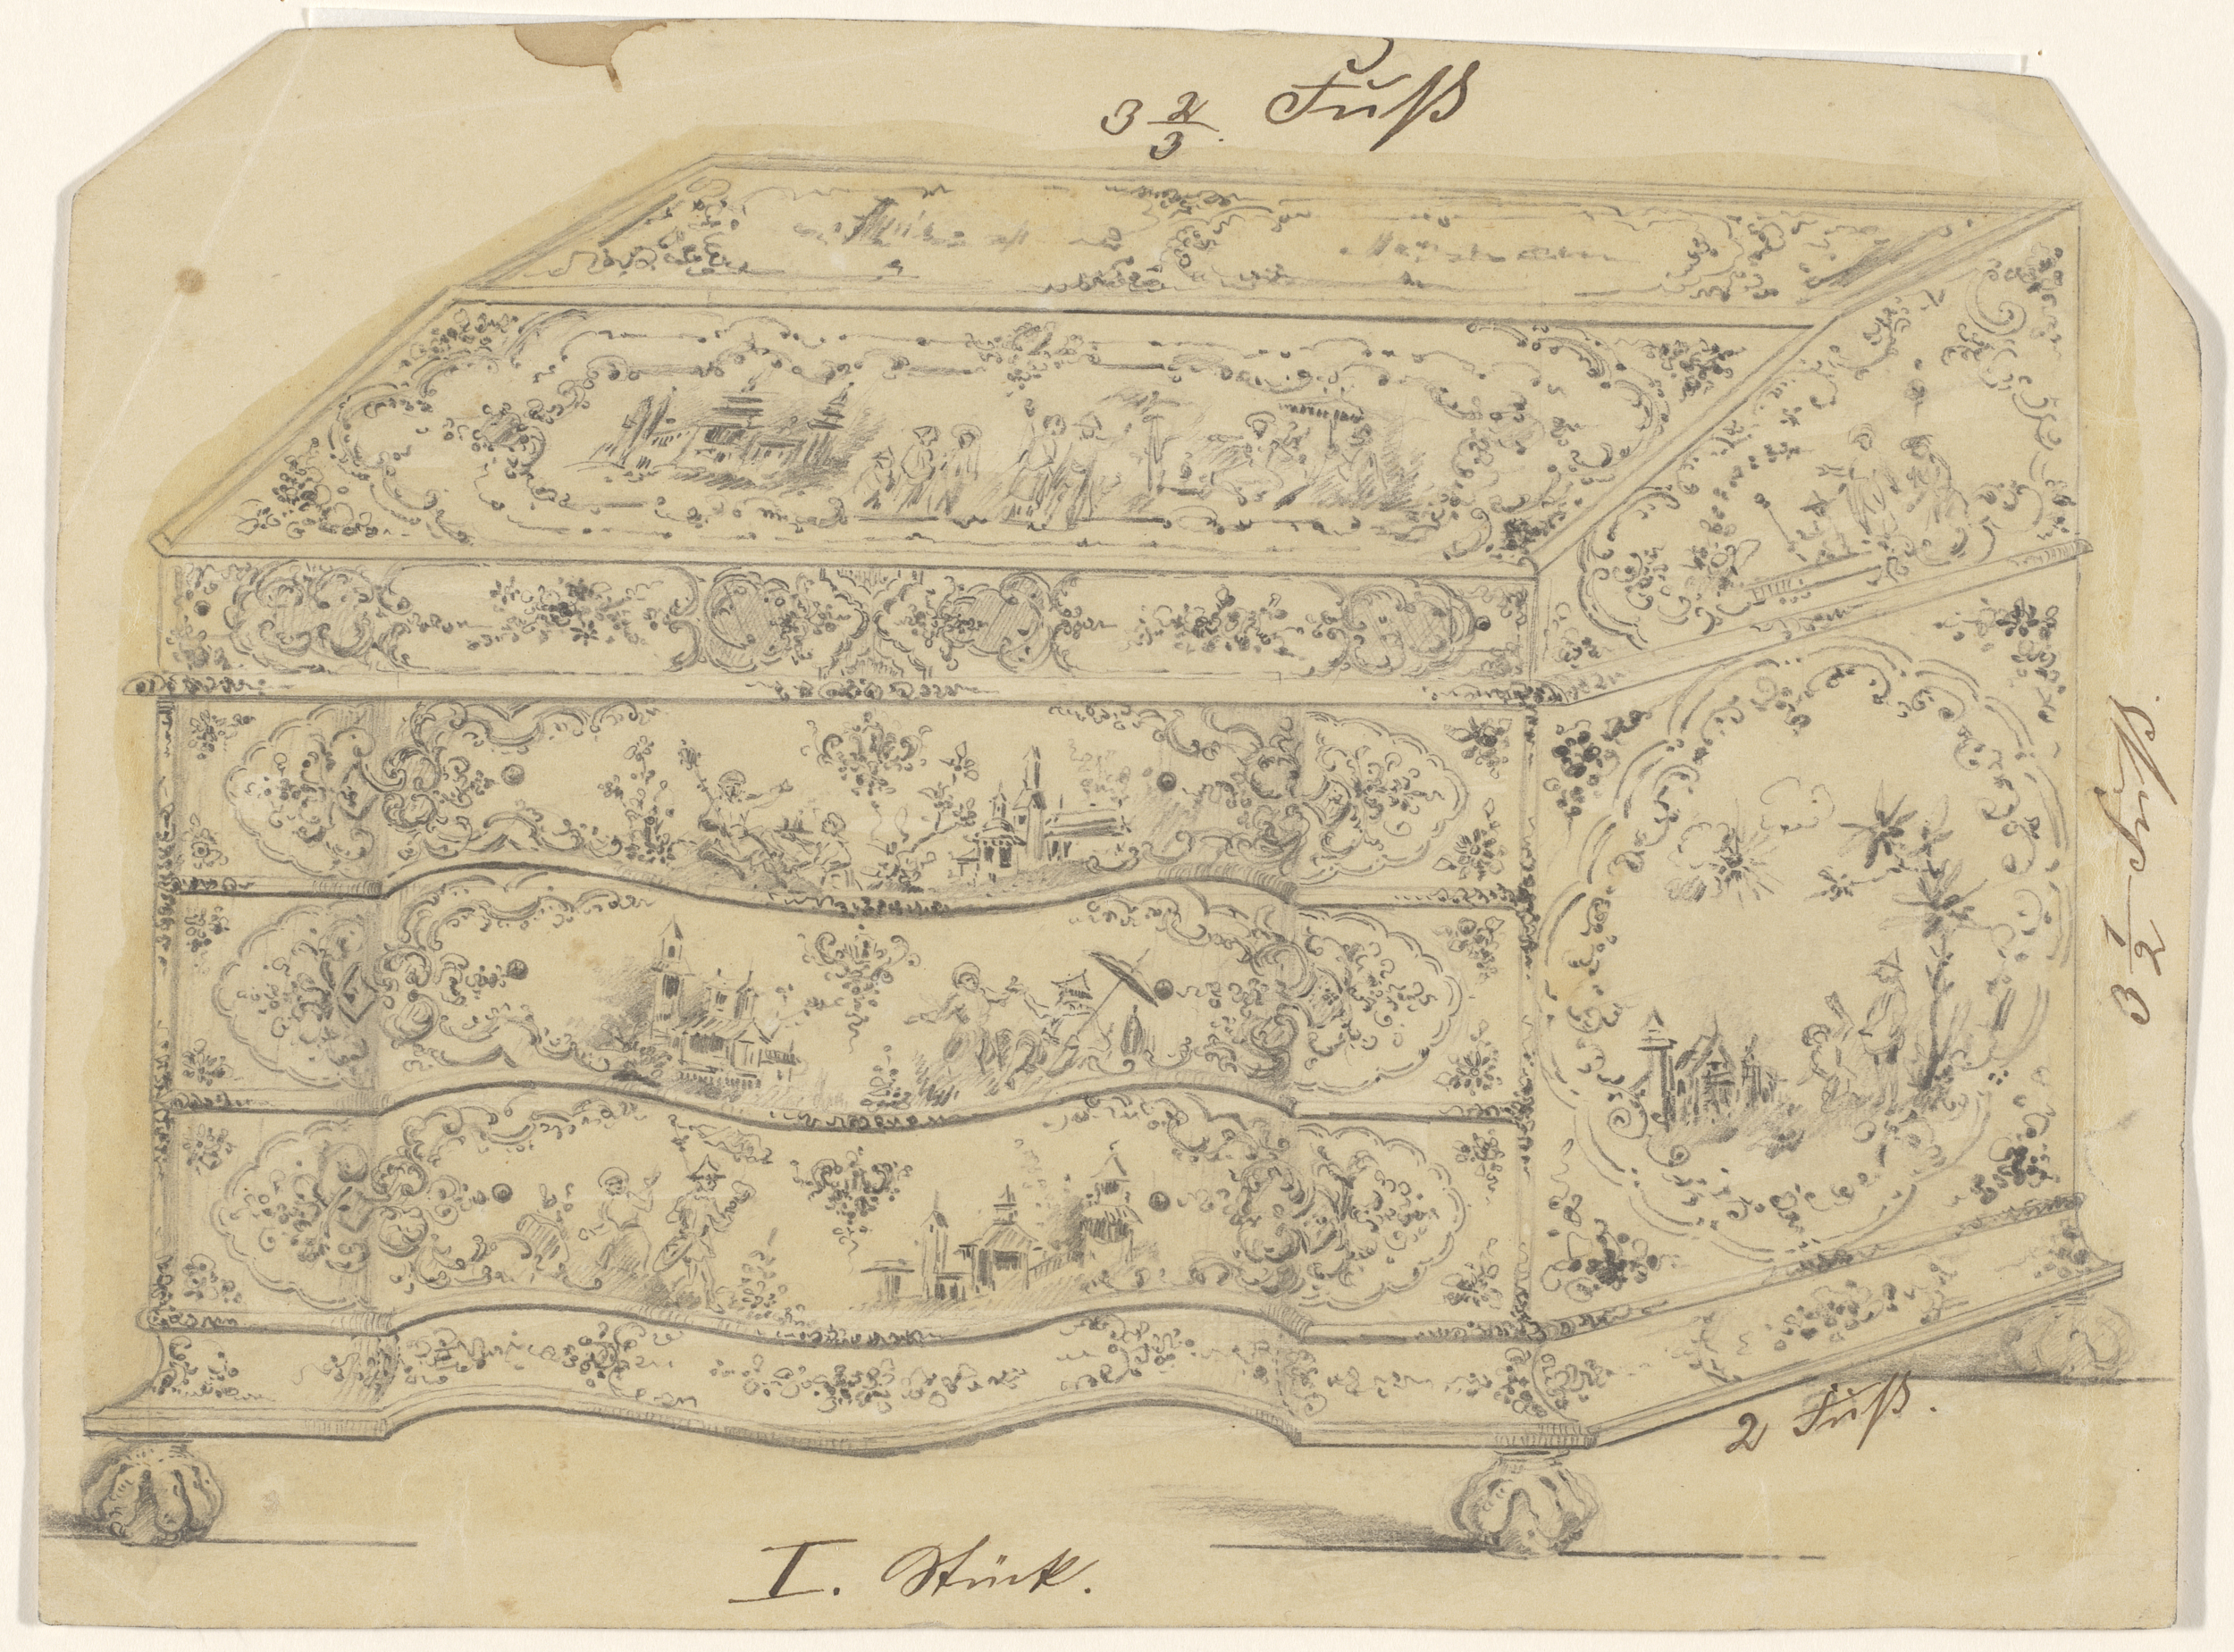 3 2/3. Fuß
3 1/2 Fuß.
2 Fuß.
I. Stück.